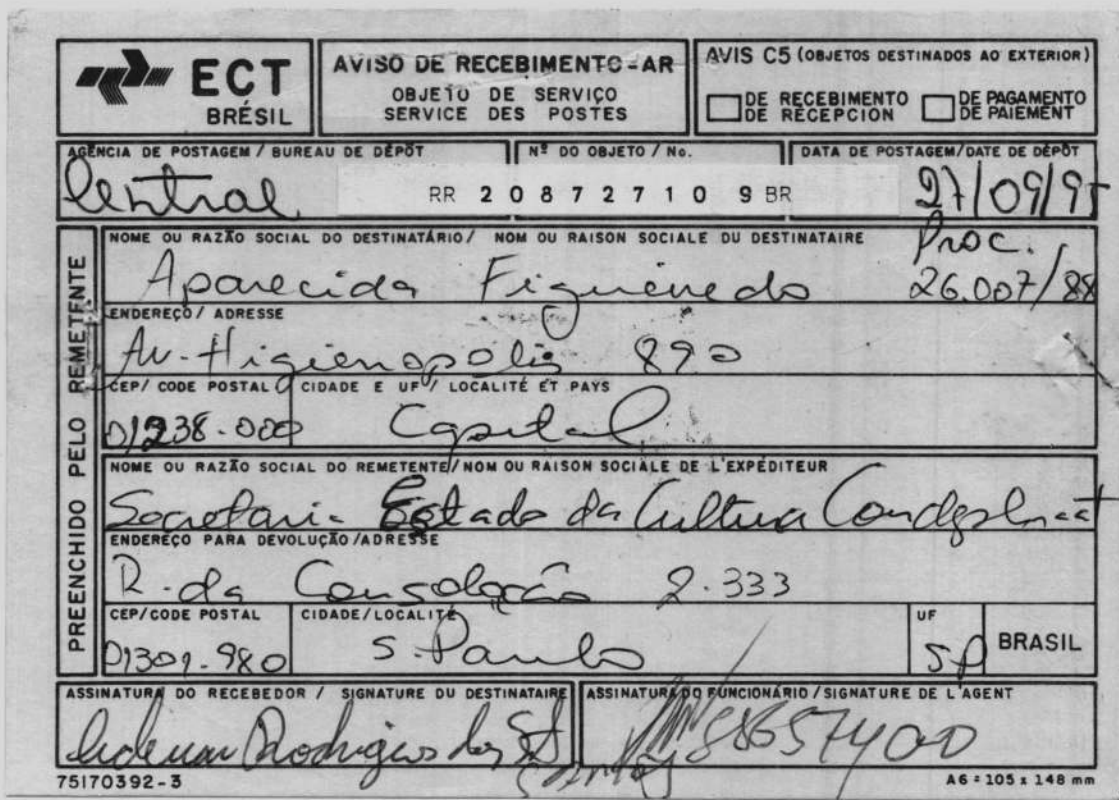 ECT
BRÉSIL
AVISO DE RECEBIMENTO-AR
OBJETO DE SERVIÇO
SERVICE DES POSTES
AVIS C5 (OBJETOS DESTINADOS AO EXTERIOR)
DE RECEBIMENTO
DE RECEPCION
DE PAGAMENTO
DE PAIEMENT
AGÊNCIA DE POSTAGEM / BUREAU DE DÉPÔT
Nº DO OBJETO / No.
DATA DE POSTAGEM/DATE DE DÉPÔT
Central
RR 20872710 9 BR
27/09/95
PREENCHIDO PELO REMETENTE
NOME OU RAZÃO SOCIAL DO DESTINATÁRIO / NOM OU RAISON SOCIALE DU DESTINATAIRE
Proc.
Aparecida Figueiredo 26.007/88
ENDEREÇO / ADRESSE
Av. Higienopolis 890
CEP/ CODE POSTAL
CIDADE E UF / LOCALITÉ ET PAYS
01238-000 Capital
NOME OU RAZÃO SOCIAL DO REMETENTE/NOM OU RAISON SOCIALE DE L'EXPÉDITEUR
Secretaria Estado da Cultura Condephaat
ENDEREÇO PARA DEVOLUÇÃO/ADRESSE
R. da Consolação 2.333
CEP/CODE POSTAL
CIDADE/LOCALITÉ
UF
01301-980 S. Paulo SP
BRASIL
ASSINATURA DO RECEBEDOR / SIGNATURE DU DESTINATAIRE
ASSINATURA DO FUNCIONÁRIO / SIGNATURE DE L'AGENT
Rodrigues dos Santos
88657400
75170392-3
A6=105 x 148 mm